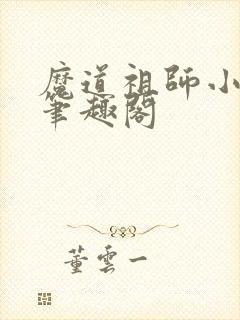 魔道祖師小
筆趣閣
董雲一